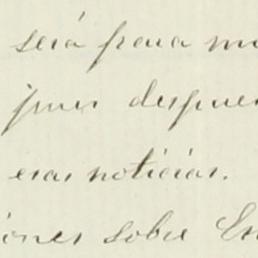 será para m
pues despues
esas noticias.
iones sobre En